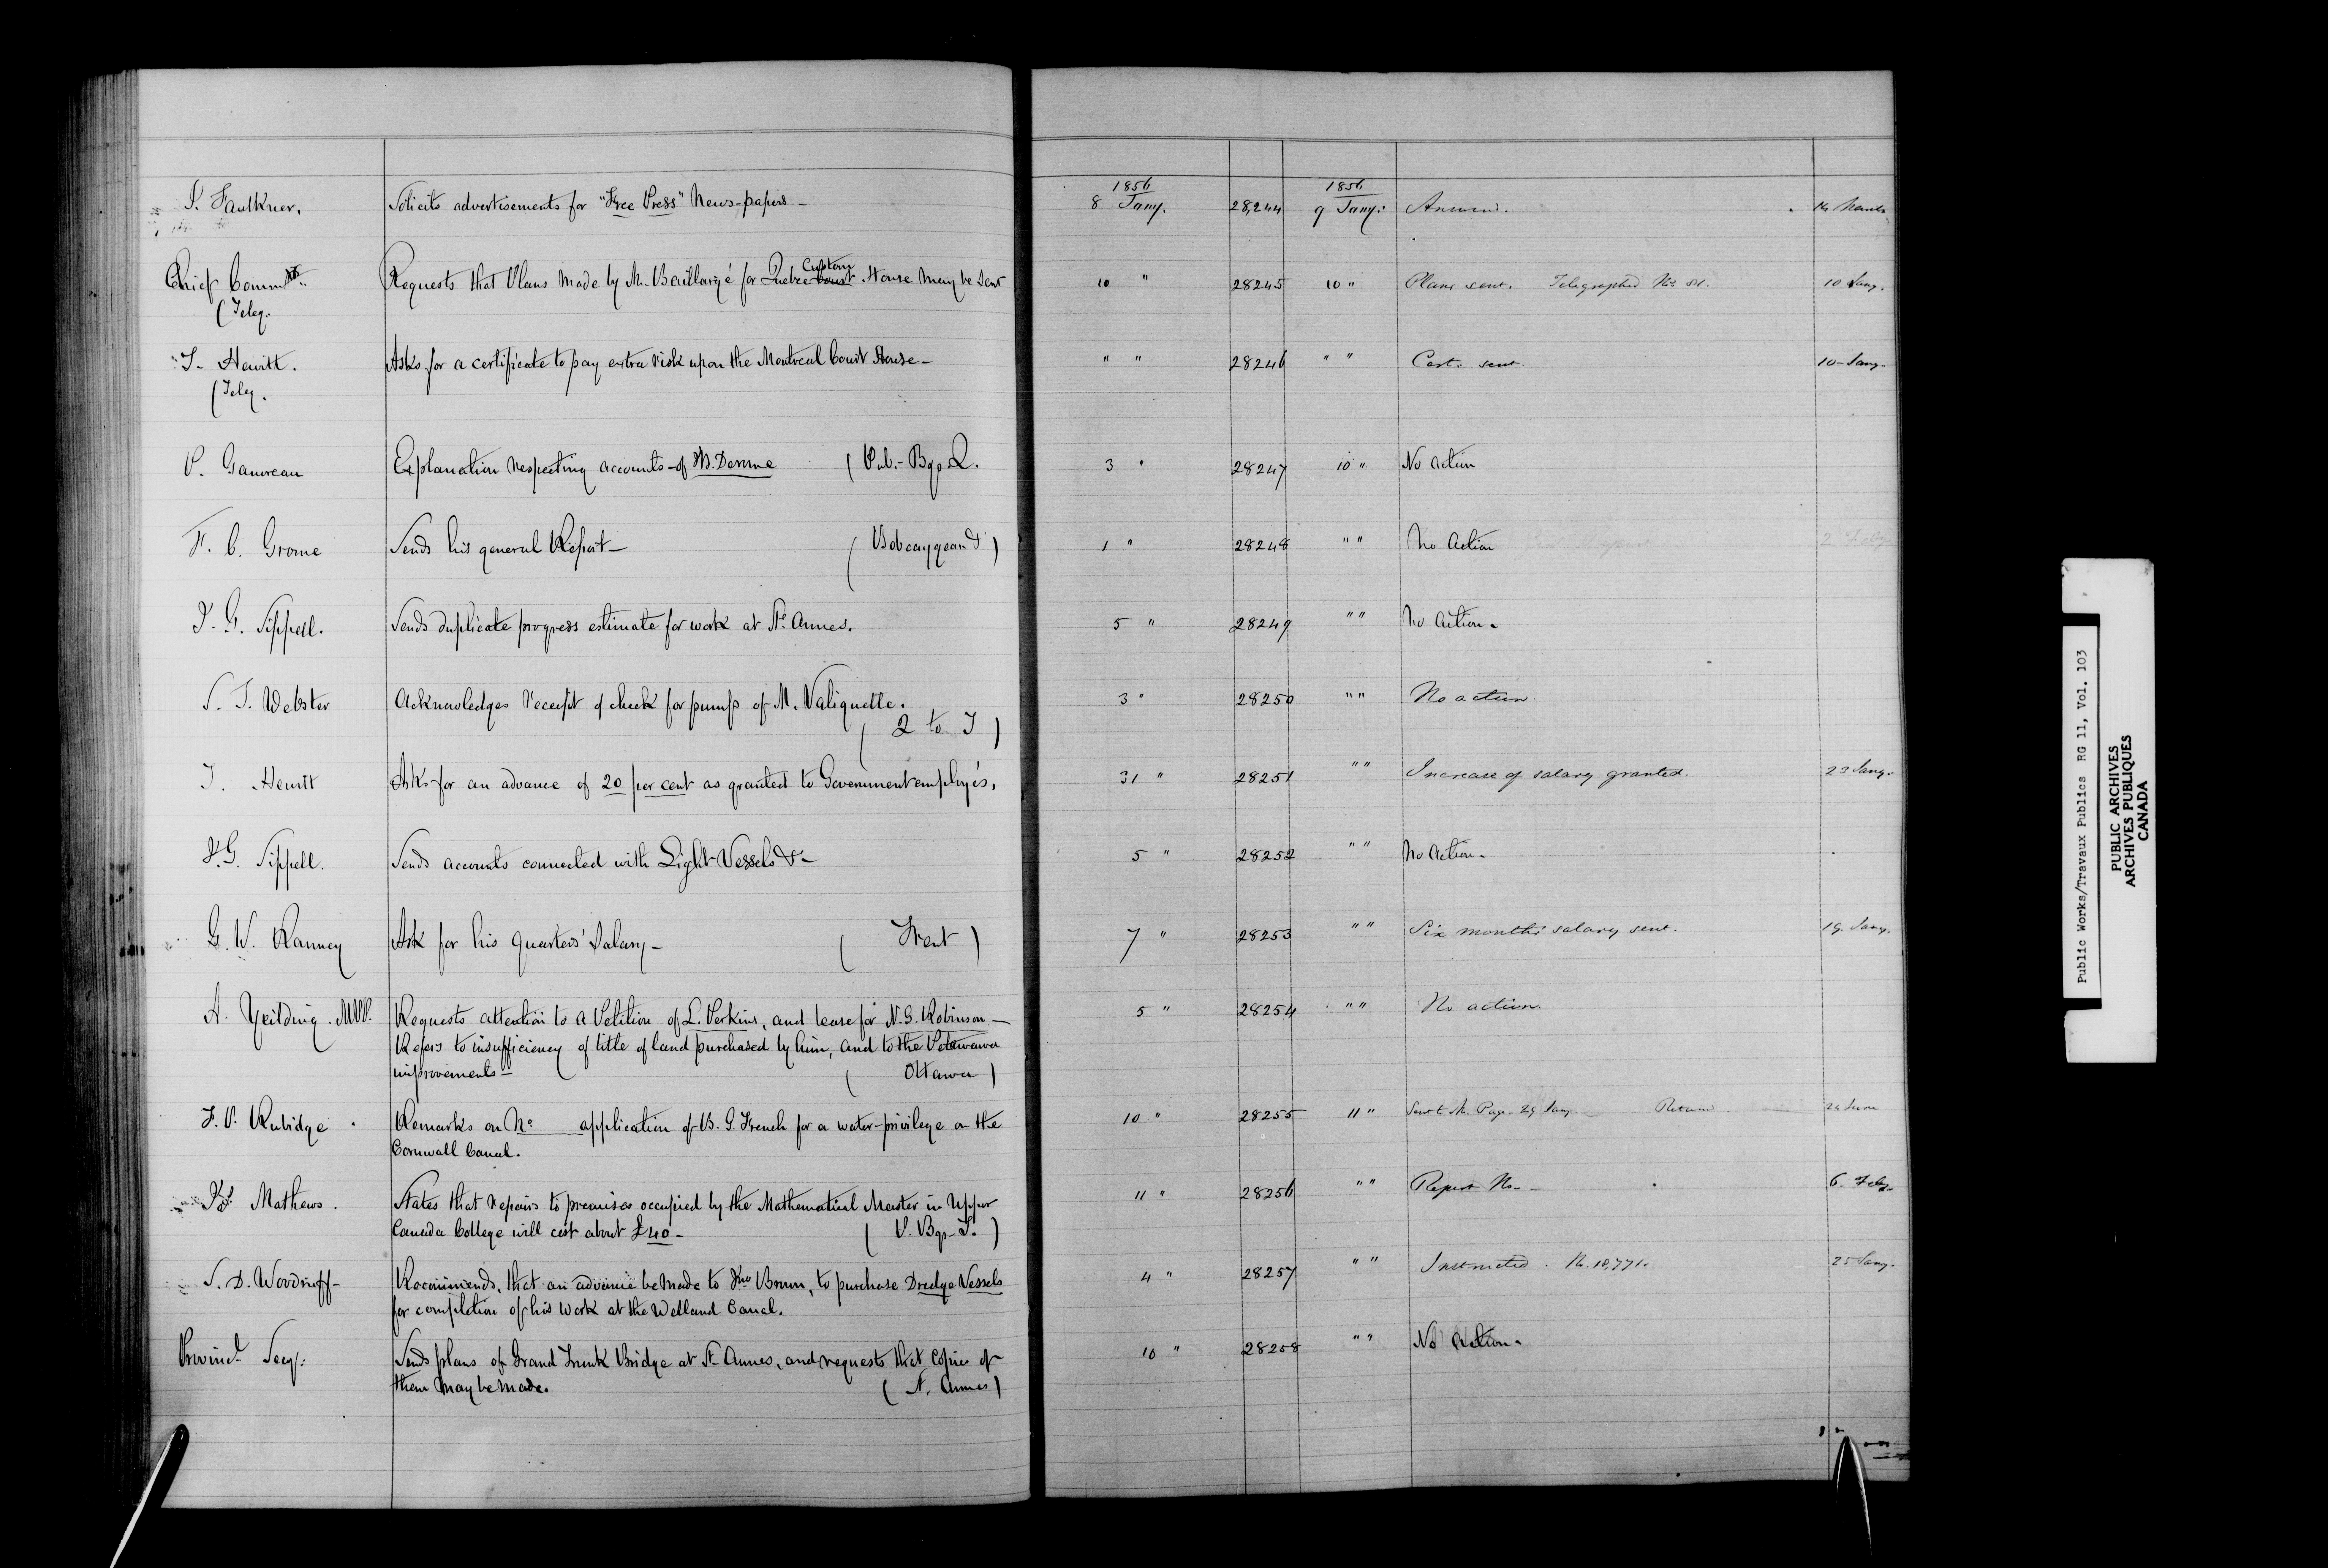 1856 1856
S. Faulkner. Solicits advertisements for "Free Press" News-papers - 8 Jany. 28,244 9 Jany: Answd. 14 March
Custom
Chief Commr. Requests that Plans made by M. Baillargé for Quebec Court House may be sent 10 " 28245 10 " Plans sent. Telegraphed No. 10 Jany.
(Teleg.
J. Hewitt. Asks for a certificate to pay extra risk upon the Montreal Court House - " " 28246 " " Cert: sent. 10 - Jany.
(Teleg.
P. Gauvreau Explanation respecting accounts of M. Derome (Pub.- Bgs. Q. 3 " 28247 10 " No action
F. C. Grome Sends his general Report - (Bobcaygeon &) 1 " 28248 " " No Action 2 Feby
J. G. Sippell. Sends duplicate progress estimate for work at Ste Annes. 5 " 28249 " " No Action -
S. T. Webster Acknowledges receipt of check for pump of M. Valiquette. 3 " 28250 " " No action.
( 2 to J )
J. Hewitt Asks for an advance of 20 per cent as granted to Government employés. 31 " 28251 " " Increase of salary granted. 23 Jany.
J. G. Sippell. Sends accounts connected with Light-Vessels & - 5 " 28252 " " No Action -
G. W. Ranney Ask for his quarters' Salary - ( Trent ) 7 " 28253 " " Six months' salary sent. 19. Jany.
A. Yeilding. MPP. Requests attention to a Petition of L. Perkins, and lease for N. S. Robinson - 5 " 28254 " " No action.
Refers to insufficiency of title of land purchased by him, and to the Petawawa
improvements - ( Ottawa )
F. P. Rubidge. Remarks on No application of B. G. French for a water-privilege on the 10 " 28255 11 " Sent to Mr. Page - 29 Jany. Returned 24 June
Cornwall Canal.
Mathews. States that repairs to premises occupied by the Mathematical Master in Upper 11 " 28256 " " Report No - 6. Feby -
Canada College will cost about £40 - ( P. Bgs - T. )
S. D. Woodruff - Recommends, that an advance be made to Jno Brown, to purchase Dredge Vessels 4 " 28257 " " Instructed. No. 18,771. 25 Jany.
for completion of his work at the Welland Canal.
Provincl. Secy: Sends plans of Grand Trunk Bridge at St Annes, and requests that copies of 10 " 28258 " " No Action -
them may be made. ( St. Annes )
Public Works/Travaux Publics RG 11, Vol. 103
PUBLIC ARCHIVES
ARCHIVES PUBLIQUES
CANADA